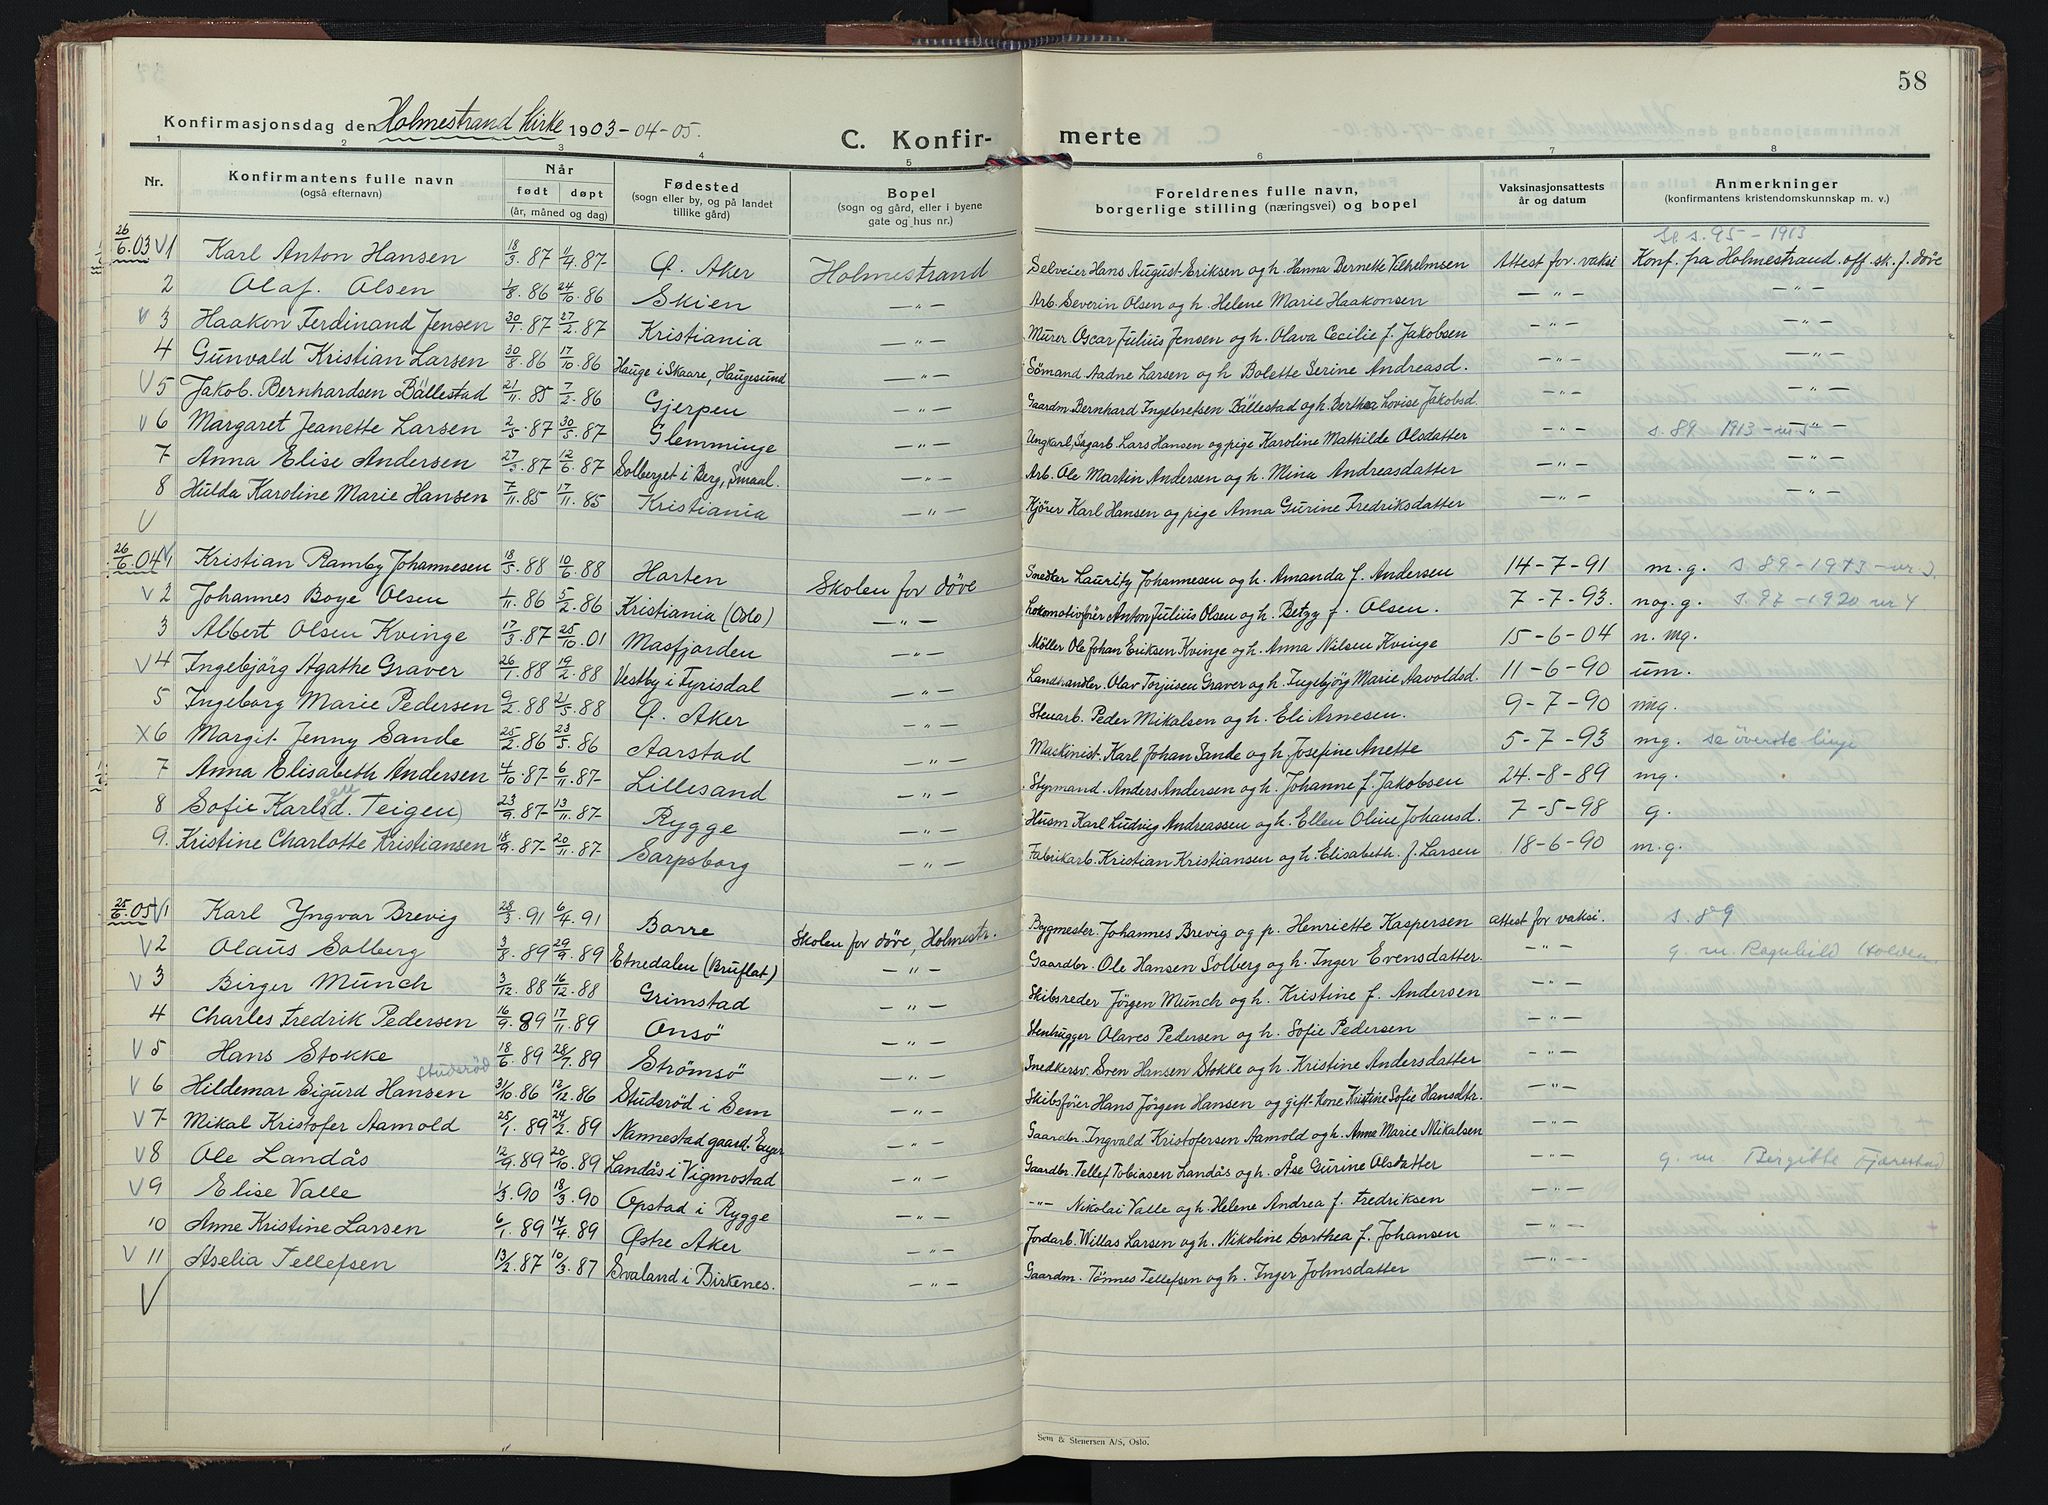 58
Konfirmasjonsdag den Holmestrand kirke 1903-04-05.
C. Konfirmerte
1 2 3 4 5 6 7 8
Nr. Konfirmantens fulle navn (også efternavn) Når født døpt (år, måned og dag) Fødested (sogn eller by, og på landet tillike gård) Bopel (sogn og gård, eller i byene gate og hus nr.) Foreldrenes fulle navn, borgerlige stilling (næringsvei) og bopel Vaksinasjonsattests år og datum Anmerkninger (konfirmantens kristendomskunnskap m. v.)
se s. 95 - 1913
26/6.03 V 1 Karl Anton Hansen 18/3.87 11/4.87 Ø. Aker Holmestrand Selveier Hans August Eriksen og h. Hanna Bernette Vilhelmsen Attest for vaksi Konf. fra Holmestrand off. sk. f. døve
2 Olaf Olsen 1/8.86 24/10.86 Skien -"- Arb. Severin Olsen og h. Helene Marie Haakonsen -"- -"-
V 3 Haakon Ferdinand Jensen 30/1.87 27/2.87 Kristiania -"- Murer Oscar Julius Jensen og h. Olava Cecilie f. Jakobsen -"- -"-
4 Gunvald Kristian Larsen 30/8.86 17/10.86 Hauge i Skaare, Haugesund -"- Sömand Aadne Larsen og h Bolette Serine Andreasd. -"- -"-
V 5 Jakob Bernhardsen Bällestad 21/11.85 7/2.86 Gjerpen -"- Gaardm Bernhard Ingebretsen Bällestad og h. Berthea Lovise Jakobsd. -"- -"-
V 6 Margaret Jeanette Larsen 2/5.87 30/5.87 Glemminge -"- Ungkarl, Sagarb Lars Hansen og pige Karoline Mathilde Olsdatter -"- s. 89 1913 - nr. 5 -"-
7 Anna Elise Andersen 27/3.87 12/6.87 Solberget i Berg, Smaal. -"- Arb. Ole Martin Andersen og h. Mina Andreasdatter -"- -"-
8 Hulda Karoline Marie Hansen 7/11.85 17/11.85 Kristiania -"- Kjörer Karl Hansen og pige Anna Gurine Fredriksdatter -"- -"-
V
26/6.04 V 1 Kristian Ramby Johannesen 18/5.88 10/6.88 Horten Skolen for döve Snedker Lauritz Johannesen og h. Amanda f. Andersen 14-7-91 m.g. s. 89 - 1913 - nr 3.
V 2 Johannes Boye Olsen 1/11.86 5/2.86 Kristiania (Oslo) -"- Lokomotivfører Anton Julius Olsen og h. Betzy f. Olsen. 7-7-93. nog.g. s. 97 - 1920 nr 4
3 Albert Olsen Kvinge 17/3.87 25/10.01 Masfjorden -"- Møller Ole Johan Eriksen Kvinge og h. Anna Nilsen Kvinge 15-6-04 n. mg.
V 4 Ingebjörg Agathe Graver 26/1.88 19/2.88 Vestby i Fyrisdal -"- Landhandler Olav Torjusen Graver og h. Ingebjörg Marie Aavoldsd. 11-6-90 um.
5 Ingeborg Marie Pedersen 9/2.88 21/5.88 Ø. Aker -"- Stenarb. Peder Mikalsen og h. Eli Arnesen. 9-7-90 mg.
X 6 Margit Jenny Sande 25/2.86 23/5.86 Aarstad -"- Maskinist Karl Johan Sande og h. Josefine Anette 5-7-93 mg. se överste linje
7 Anna Elisabeth Andersen 4/10.87 6/11.87 Lillesand -"- Styrmand. Anders Andersen og h. Johanne f. Jakobsen 24-8-89 mg.
8 Sofie Karlsd. Teigen) 23/9.87 13/11.87 Rygge -"- Husm Karl Ludvig Andreassen og h. Ellen Oline Johansd. 7-5-98 g.
9. Kristine Charlotte Kristiansen 18/9.87 20/11.87 Sarpsborg -"- Fabrikarb. Kristian Kristiansen og h. Elisabeth f. Larsen 18-6-90 m.g.
25/6.05 V 1 Karl Yngvar Brevig 28/3.91 6/4.91 Borre Skolen for döve, Holmestr. Bygmester Johannes Brevig og p. Henriette Kaspersen attest for vaksi. s. 89
V 2 Olaus Solberg 3/8.89 29/9.89 Etnedalen (Bruflat) -"- Gaardbr. Ole Hansen Solberg og h. Inger Evensdatter -"- g. m. Ragnhild Holden
V 3 Birger Munch 3/12.88 16/12.88 Grimstad -"- Skibsreder Jörgen Munch og h. Kristine f. Andersen -"-
4 Charles Fredrik Pedersen 16/9.89 17/11.89 Onsö -"- Stenhugger Olaves Pedersen og h. Sofie Pedersen -"-
V 5 Hans Stokke 18/6.89 28/7.89 Strömsö -"- Snedkersv. Sven Hansen Stokke og h. Kristine Andersdatter -"-
Studsröd
V 6 Hildemar Sigurd Hansen 31/10.86 12/12.86 Studsröd i Sem -"- Skibsfører Hans Jörgen Hansen og gift kone Kristine Sofie Hansdtr. -"-
V 7 Mikal Kristofer Aamold 25/1.89 24/2.89 Nannestad gaard. Eiger -"- Gaardbr. Ingvald Kristofersen Aamold og h. Anne Marie Mikalsen -"-
V 8 Ole Landås 12/9.89 20/10.89 Landås i Vigmostad -"- Gaardbr. Tellef Tobiasen Landås og h. Åse Gurine Olsdatter -"- g. m. Bergitte Fjærestad
V 9 Elise Valle 1/3.90 18/3.90 Opstad i Rygge -"- -"- Nikolai Valle og h. Helene Andrea f. Fredriksen -"-
10 Anne Kristine Larsen 6/1.89 14/4.89 Østre Aker -"- Jordarb. Willas Larsen og h. Nikoline Dorthea f. Johansen -"-
V 11 Aselia Tellefsen 13/2.87 10/3.87 Svaland i Birkenes. -"- Gaardm. Tönnes Tellefsen og h. Inger Johnsdatter -"-
V
Sem & Stenersen A/S, Oslo.